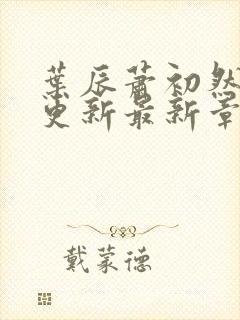 葉辰蕭初然
更新最新章
戴蒙德